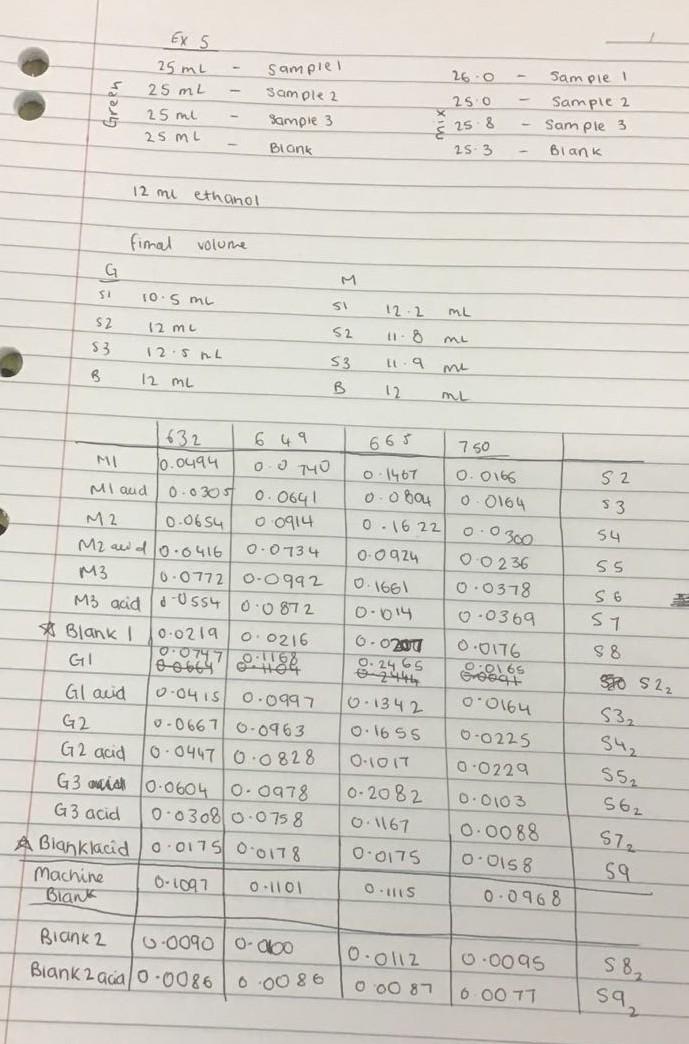 Ex 5
25 mL - Sample 1
25 mL - Sample 2
25 mL - Sample 3
25 mL - Blank
Green
26.0 - Sample 1
25.0 - Sample 2
25.8 - Sample 3
25.3 - Blank
Mix
12 ml ethanol
final volume
G
S1 10.5 mL
S2 12 mL
S3 12.5 mL
B 12 mL
M
S1 12.2 mL
S2 11.8 mL
S3 11.9 mL
B 12 mL
632 649 665 750
M1 0.0494 0.0740 0.1467 0.0166 S2
M1 acid 0.0305 0.0641 0.0804 0.0164 S3
M2 0.0654 0.0914 0.1622 0.0300 S4
M2 acid 0.0416 0.0734 0.0924 0.0236 S5
M3 0.0772 0.0992 0.1661 0.0378 S6
M3 acid 0.0554 0.0872 0.1014 0.0369 S7
☆ Blank 1 0.0219 0.0216 0.0207 0.0176 S8
G1 0.0747 0.1168 0.2465 0.0165 S2₂
0.0664 0.1104 0.2444 0.0091
G1 acid 0.0415 0.0997 0.1342 0.0164 S3₂
G2 0.0667 0.0963 0.1655 0.0225 S4₂
G2 acid 0.0447 0.0828 0.1017 0.0229 S5₂
G3 0.0604 0.0978 0.2082 0.0103 S6₂
G3 acid 0.0308 0.0758 0.1167 0.0088 S7₂
☆ Blank1acid 0.0175 0.0178 0.0175 0.0158 S9
Machine Blank 0.1097 0.1101 0.1115 0.0968
Blank 2 0.0090 0.0112 0.0095 S8₂
Blank 2 acid 0.0086 0.0086 0.0087 0.0077 S9₂